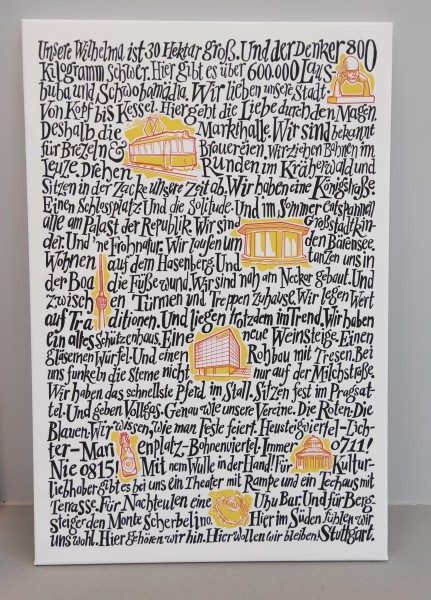 Unsere Wilhelma ist 30 Hektar groß. Und der Denker 800
Kilogramm schwer. Hier gibt es über 600.000 Laus-
buba und Schwobamädla. Wir lieben unsere Stadt
Von Kopf bis Kessel. Hier geht die Liebe durch den Magen.
Deshalb die Markthalle. Wir sind bekannt
für Brezeln & Brauereien. Wir ziehen Bahnen im
Leuze. Drehen Runden im Kräherwald und
Sitzen in der Zacke unsere Zeit ab. Wir haben eine Königstraße.
Einen Schlossplatz. Und die Solitude. Und im Sommer entspannen
alle am Palast der Republik. Wir sind Großstadtkin-
der. Und 'ne Frohnatur. Wir laufen um den Bärensee.
Wohnen auf dem Hasenberg. Und tanzen uns in
der Boa die Füße wund. Wir sind nah am Neckar gebaut. Und
zwischen Türmen und Treppen zuhause. Wir legen Wert
auf Traditionen. Und liegen trotzdem im Trend. Wir haben
ein altes Schützenhaus. Eine neue Weinsteige. Einen
gläsernen Würfel. Und einen Rohbau mit Tresen. Bei
uns funkeln die Sterne nicht nur auf der Milchstraße.
Wir haben das schnellste Pferd im Stall. Sitzen fest im Pragsat-
tel. Und geben Vollgas. Genau wie unsere Vereine. Die Roten. Die
Blauen. Wir wissen, wie man Feste feiert. Heusteigviertel-Lich-
ter-Marienplatz-Bohnenviertel. Immer 0711!
Nie 0815! Mit nem Wulle in der Hand! Für Kultur-
liebhaber gibt es bei uns ein Theater mit Rampe und ein Teehaus mit
Terrasse. Für Nachteulen eine Uhu Bar. Und für Berg-
steiger den Monte Scherbelino. Hier im Süden fühlen wir
uns wohl. Hier gehören wir hin. Hier wollen wir bleiben! Stuttgart.